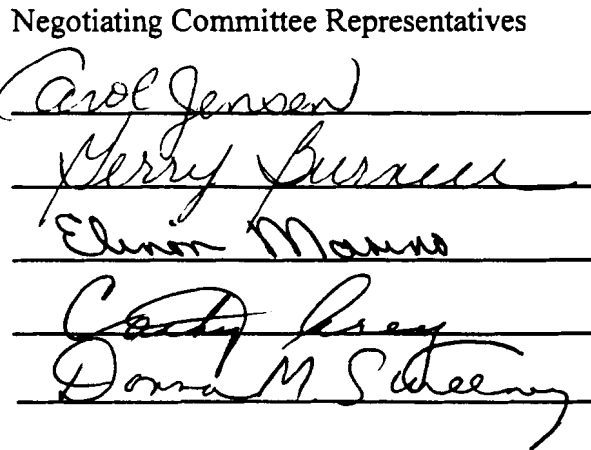 Negotiating Committee Representatives
Carol Jensen
Gerry
Elinor Marino
Cathy
Donna M. Sweeney